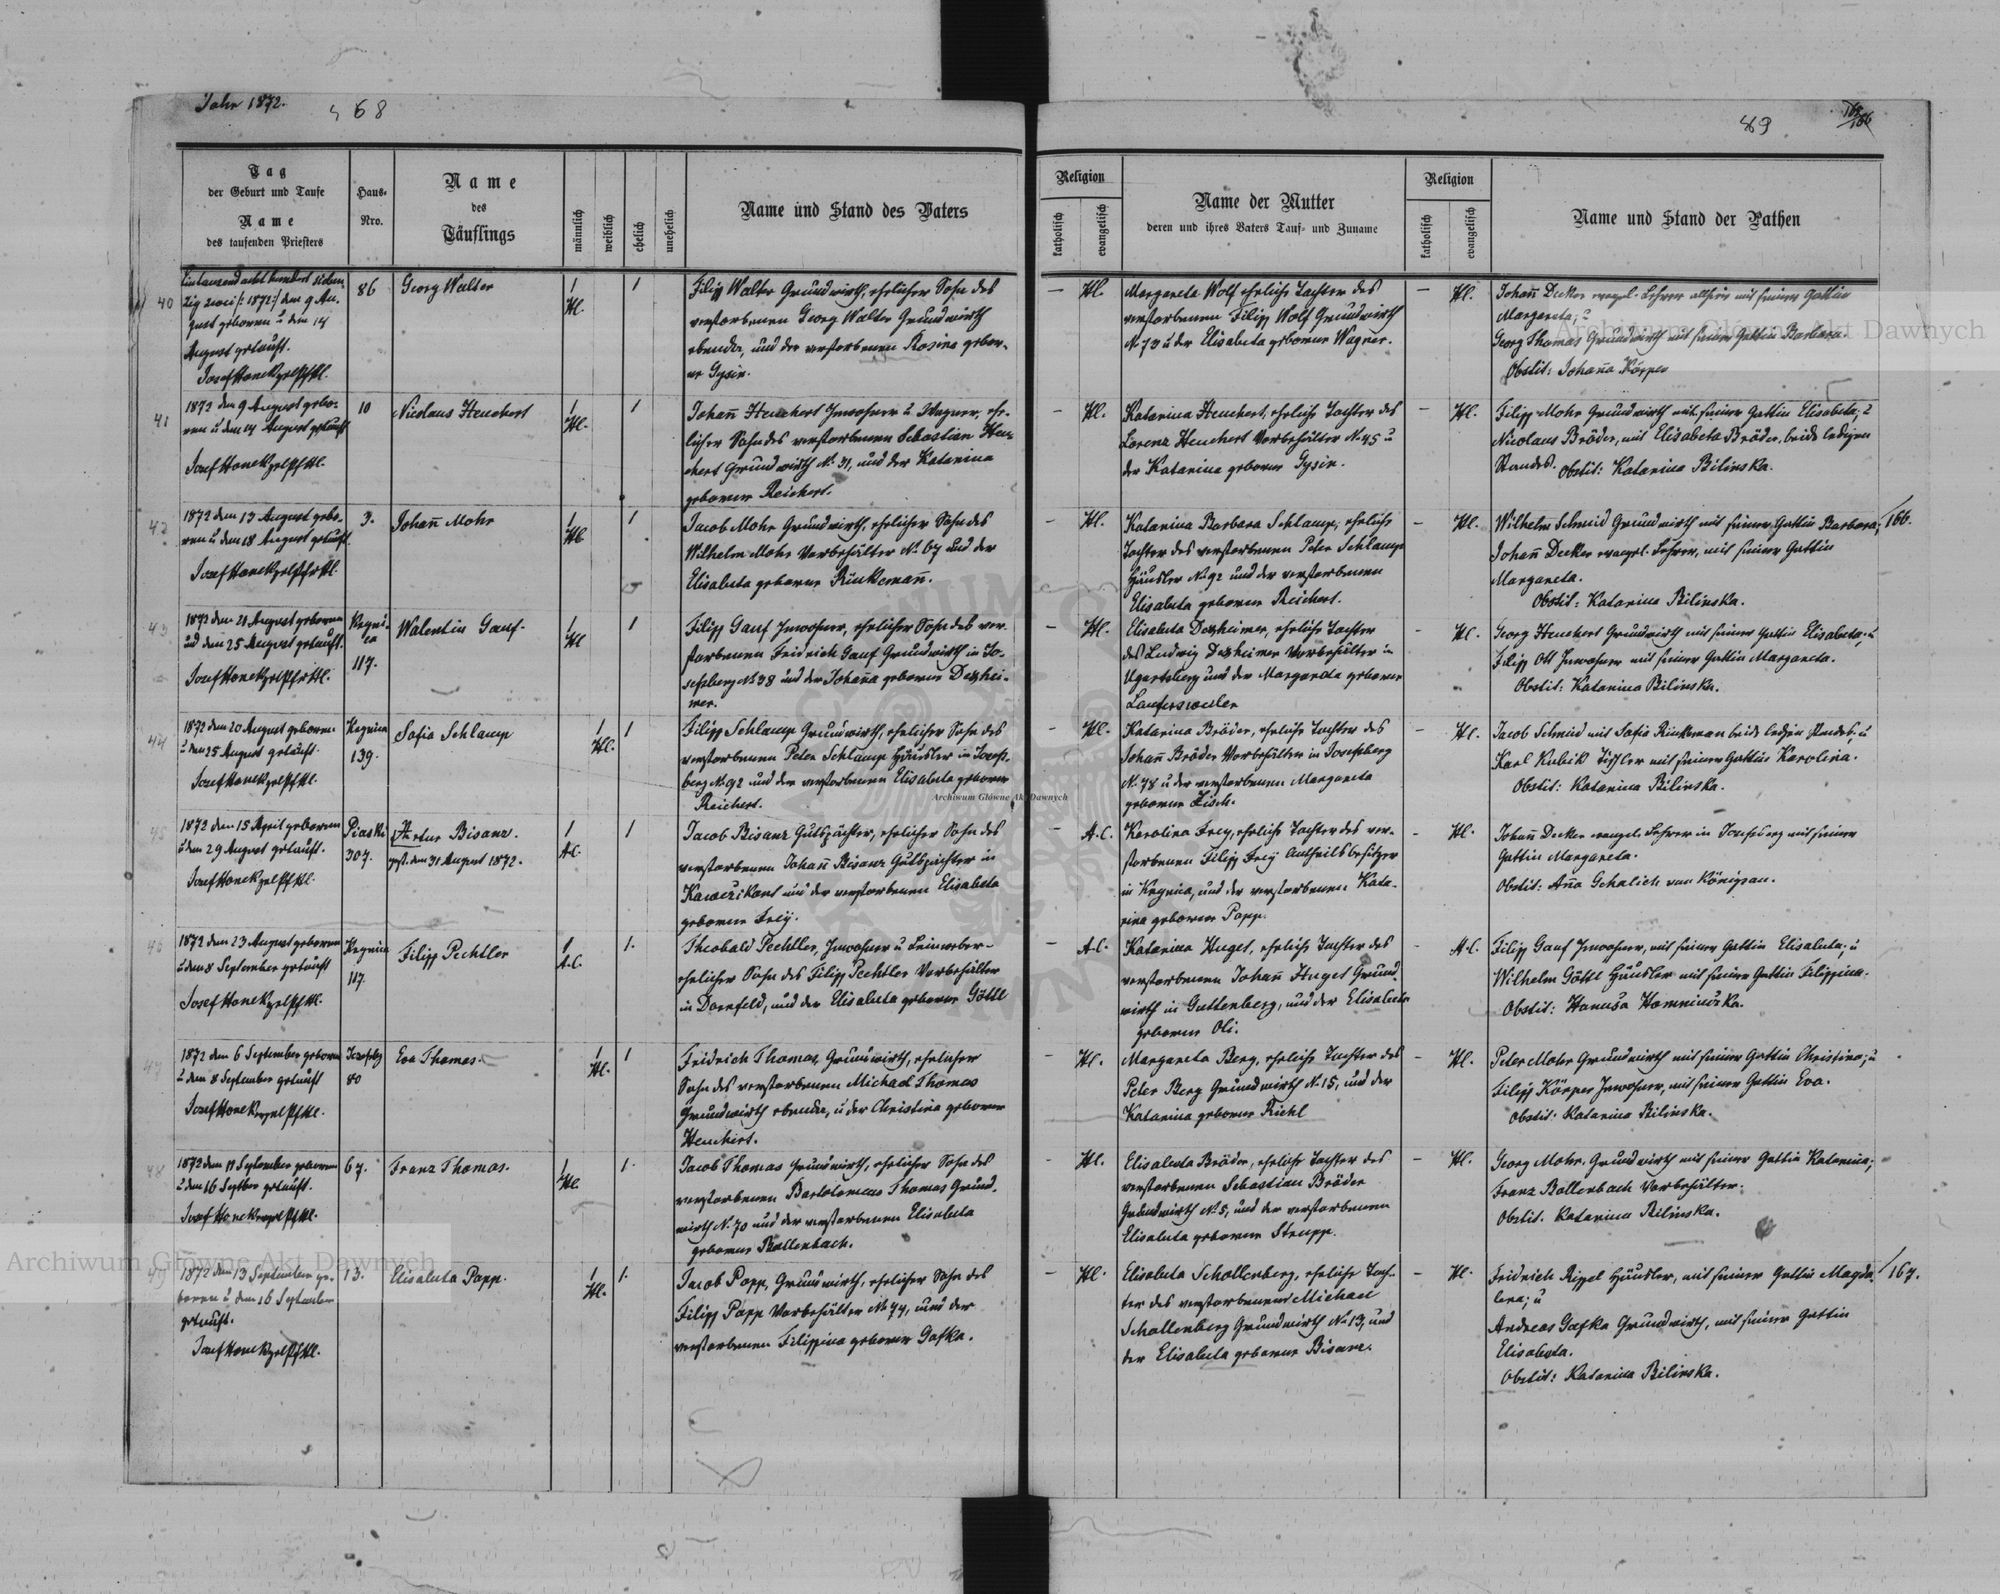 Jahr 1872.
68
69
166
Tag
der Geburt und Taufe
Name
des taufenden Priesters
Haus-
Nro.
Name
des
Täuflings
männlich
weiblich
ehelich
unehelich
Name und Stand des Vaters
Religion
katholisch
evangelisch
Name der Mutter
deren und ihres Vaters Tauf- und Zuname
Religion
katholisch
evangelisch
Name und Stand der Pathen
40
Eintausend acht hundert sieben
zig zwei /: 1872 :/ den 9 Au-
gust geboren u den 14
August getauft.
86
Georg Walter
1
Hl.
1
Filipp Walter Grundwirth, ehelicher Sohn des
verstorbenen Georg Walter Grundwirth
ebenda, und der verstorbenen Rosina gebor-
ne Gysin.
— Hl.
Margareta Wolf eheliche Tochter des
verstorbenen Filipp Wolf Grundwirth
N. 73 u der Elisabeta geborne Wagner.
— Hl.
Johann Decker evangel. Lehrer allhier mit seiner Gattin
Margareta; u
Georg Thomas Grundwirth mit seiner Gattin Barbara.
Obstit: Johanna Körper
41
1872 den 9 August gebo-
ren u den 14 August getauft
10
Nicolaus Heuchert
1
Hl.
1
Johann Heuchert Inwohner u Wagner, ehe-
licher Sohn des verstorbenen Sebastian Heu-
chert Grundwirth N. 31, und der Katarina
geborene Reichert.
— Hl.
Katarina Heuchert, eheliche Tochter des
Lorenz Heuchert Vorbehälter N. 45 u
der Katarina geborne Gysin.
— Hl.
Filipp Mohr Grundwirth mit seiner Gattin Elisabeta; u
Nicolaus Bröder, mit Elisabeta Bröder, beide ledigen
Standes. Obstit: Katarina Bilinska.
42
1872 den 13 August gebo-
ren u den 18 August getauft.
3.
Johann Mohr
1
Hl.
1
Jacob Mohr Grundwirth, ehelicher Sohn des
Wilhelm Mohr Vorbehälter N. 67 und der
Elisabeta geborne Rinkemann.
— Hl.
Katarina Barbara Schlamp, eheliche
Tochter des verstorbenen Peter Schlamp
Häusler N. 92 und der verstorbenen
Elisabeta geborne Reichert.
— Hl.
Wilhelm Schmid Grundwirth mit seiner Gattin Barbara;
Johann Decker evangel. Lehrer, mit seiner Gattin
Margareta.
Obstit: Katarina Bilinska.
166.
43
1872 den 21 August geboren
und den 25 August getauft.
Kryni-
ca
117.
Walentin Gauf.
1
Hl
1
Filipp Gauf Inwohner, ehelicher Sohn des ver-
storbenen Fridrich Gauf Grundwirth in Jo-
sefsberg N. 38 und der Johanna geborne Dezhei-
mer.
— Hl.
Elisabeta Dezheimer, eheliche Tochter
des Ludwig Dezheimer Vorbehälter in
Ugartsberg und der Margareta geborne
Laufersweiler
— Hl.
Georg Heuchert Grundwirth mit seiner Gattin Elisabeta; u
Filipp Ott Inwohner mit seiner Gattin Margareta.
Obstit: Katarina Bilinska.
44
1872 den 20 August geboren
u den 25 August getauft.
Krynica
139.
Sofia Schlamp
1
Hl.
1
Filipp Schlamp Grundwirth, ehelicher Sohn des
verstorbenen Peter Schlamp Häusler in Josefs-
berg N. 92 und der verstorbenen Elisabeta geborne
Reichert.
— Hl.
Katarina Bröder, eheliche Tochter des
Johann Bröder Vorbehälter in Josefsberg
N. 78 u der verstorbenen Margareta
geborne Zisch.
— Hl.
Jacob Schmid mit Sofia Rinkeman beide ledigen Standes; u
Karl Kubik Tischler mit seiner Gattin Karolina.
Obstit: Katarina Bilinska.
45
1872 den 15 April geboren
u den 29 August getauft.
Piaski
307.
Artur Bisanz.
gest. den 31 August 1872.
1
A.C.
1
Jacob Bisanz Gutspächter, ehelicher Sohn des
verstorbenen Johann Bisanz Gutspächter in
und der verstorbenen Elisabeta
geborne Frey.
— A.C.
Karolina Frey, eheliche Tochter des ver-
storbenen Filipp Frey Antheilsbesitzer
in Krynica, und der verstorbenen Kata-
rina geborne Popp.
— Hl.
Johann Decker evangel. Lehrer in Josefsberg mit seiner
Gattin Margareta.
Obstit: Anna Gehalich von Königsau.
46
1872 den 23 August geboren
u den 8 September getauft
Krynica
117.
Filipp Pechtler
1
A.C.
1.
Theobald Pechtler, Inwohner u Leinweber-
ehelicher Sohn des Filipp Pechtler Vorbehälter
in Dornfeld, und der Elisabeta geborne Göttl
— A.C.
Katarina Huget, eheliche Tochter des
verstorbenen Johann Huget Grund-
wirth in Guttenberg, und der Elisabeta
geborne Oli.
— A.C.
Filipp Gauf Inwohner, mit seiner Gattin Elisabeta; u
Wilhelm Göttl Häusler mit seiner Gattin Filippina.
47
1872 den 6 September geboren
u den 8 September getauft
Josefsbg
80
Eva Thomas.
1
Hl.
1
Fridrich Thomas, Grundwirth, ehelicher
Sohn des verstorbenen Michael Thomas
Grundwirth ebenda, u der Christina geborne
Heuchert.
— Hl.
Margareta Berg, eheliche Tochter des
Peter Berg Grundwirth N. 15, und der
Katarina geborne Richl
— Hl.
Peter Mohr Grundwirth mit seiner Gattin Christina; u
Filipp Körper Inwohner, mit seiner Gattin Eva.
Obstit: Katarina Bilinska.
48
1872 den 11 September geboren
u den 16 Septber getauft.
67.
Franz Thomas.
1
Hl
1.
Jacob Thomas Grundwirth, ehelicher Sohn des
verstorbenen Bartolomeus Thomas Grund-
wirth N. 70 und der verstorbenen Elisabeta
geborne Bollenbach.
— Hl.
Elisabeta Bröder, eheliche Tochter des
verstorbenen Sebastian Bröder
Grundwirth N. 5, und der verstorbenen
Elisabeta geborne Strupp.
— Hl.
Georg Mohr, Grundwirth mit seiner Gattin Katarina;
Franz Bollenbach Vorbehälter.
Obstit. Katarina Bilinska.
49
1872 den 13 September ge-
boren u den 16 September
getauft.
13.
Elisabeta Popp.
1
Hl.
1.
Jacob Popp, Grundwirth, ehelicher Sohn des
Filipp Popp Vorbehälter N. 74, und der
verstorbenen Filippina geborne Gafka.
— Hl.
Elisabeta Schollenberg, eheliche Toch-
ter des verstorbenen Michael
Schollenberg Grundwirth N. 13, und
der Elisabeta geborne Bisanz.
— Hl.
Fridrich Rippel Häusler, mit seiner Gattin Magda-
lena; u
Andreas Gafka Grundwirth, mit seiner Gattin
Elisabeta.
Obstit: Katarina Bilinska.
167.
Archiwum Główne Akt Dawnych
Archiwum Główne Akt Dawnych
Archiwum Główne Akt Dawnych